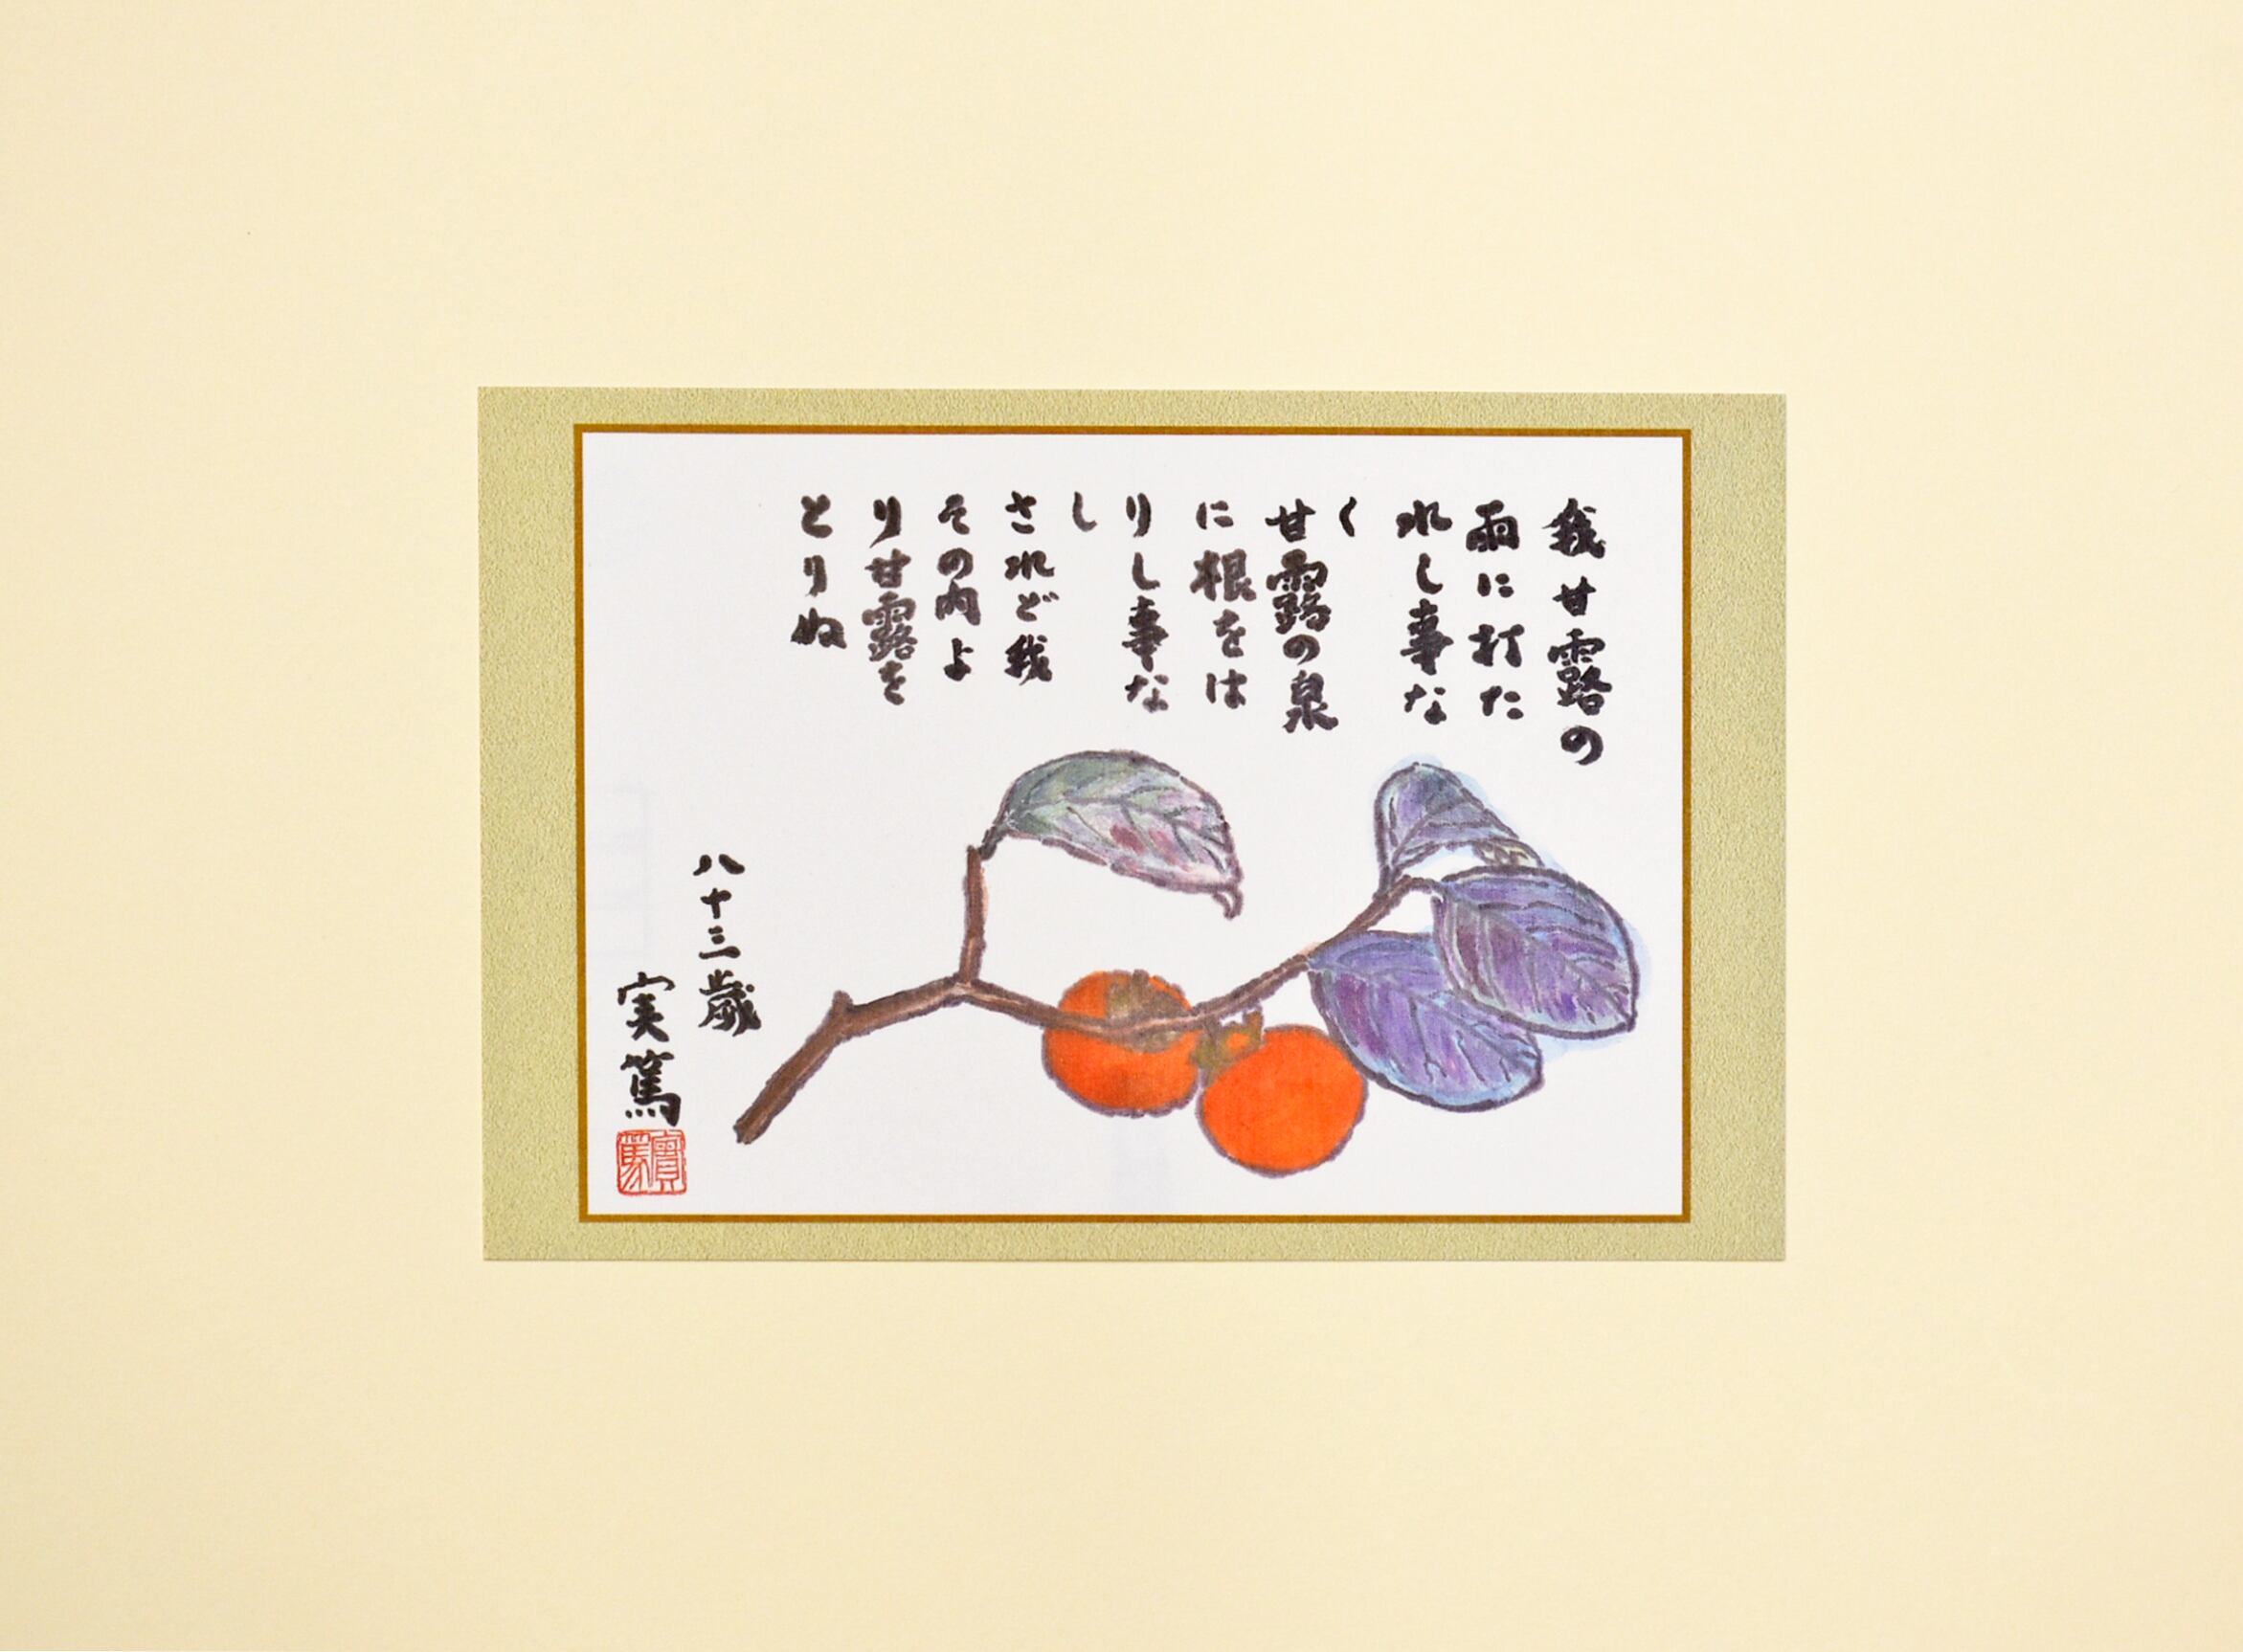 我甘露の
雨に打た
れし事な
く
甘露の泉
に根をは
りし事な
し
されど我
その内よ
り甘露を
とりぬ
八十三歳
実篤
實篤